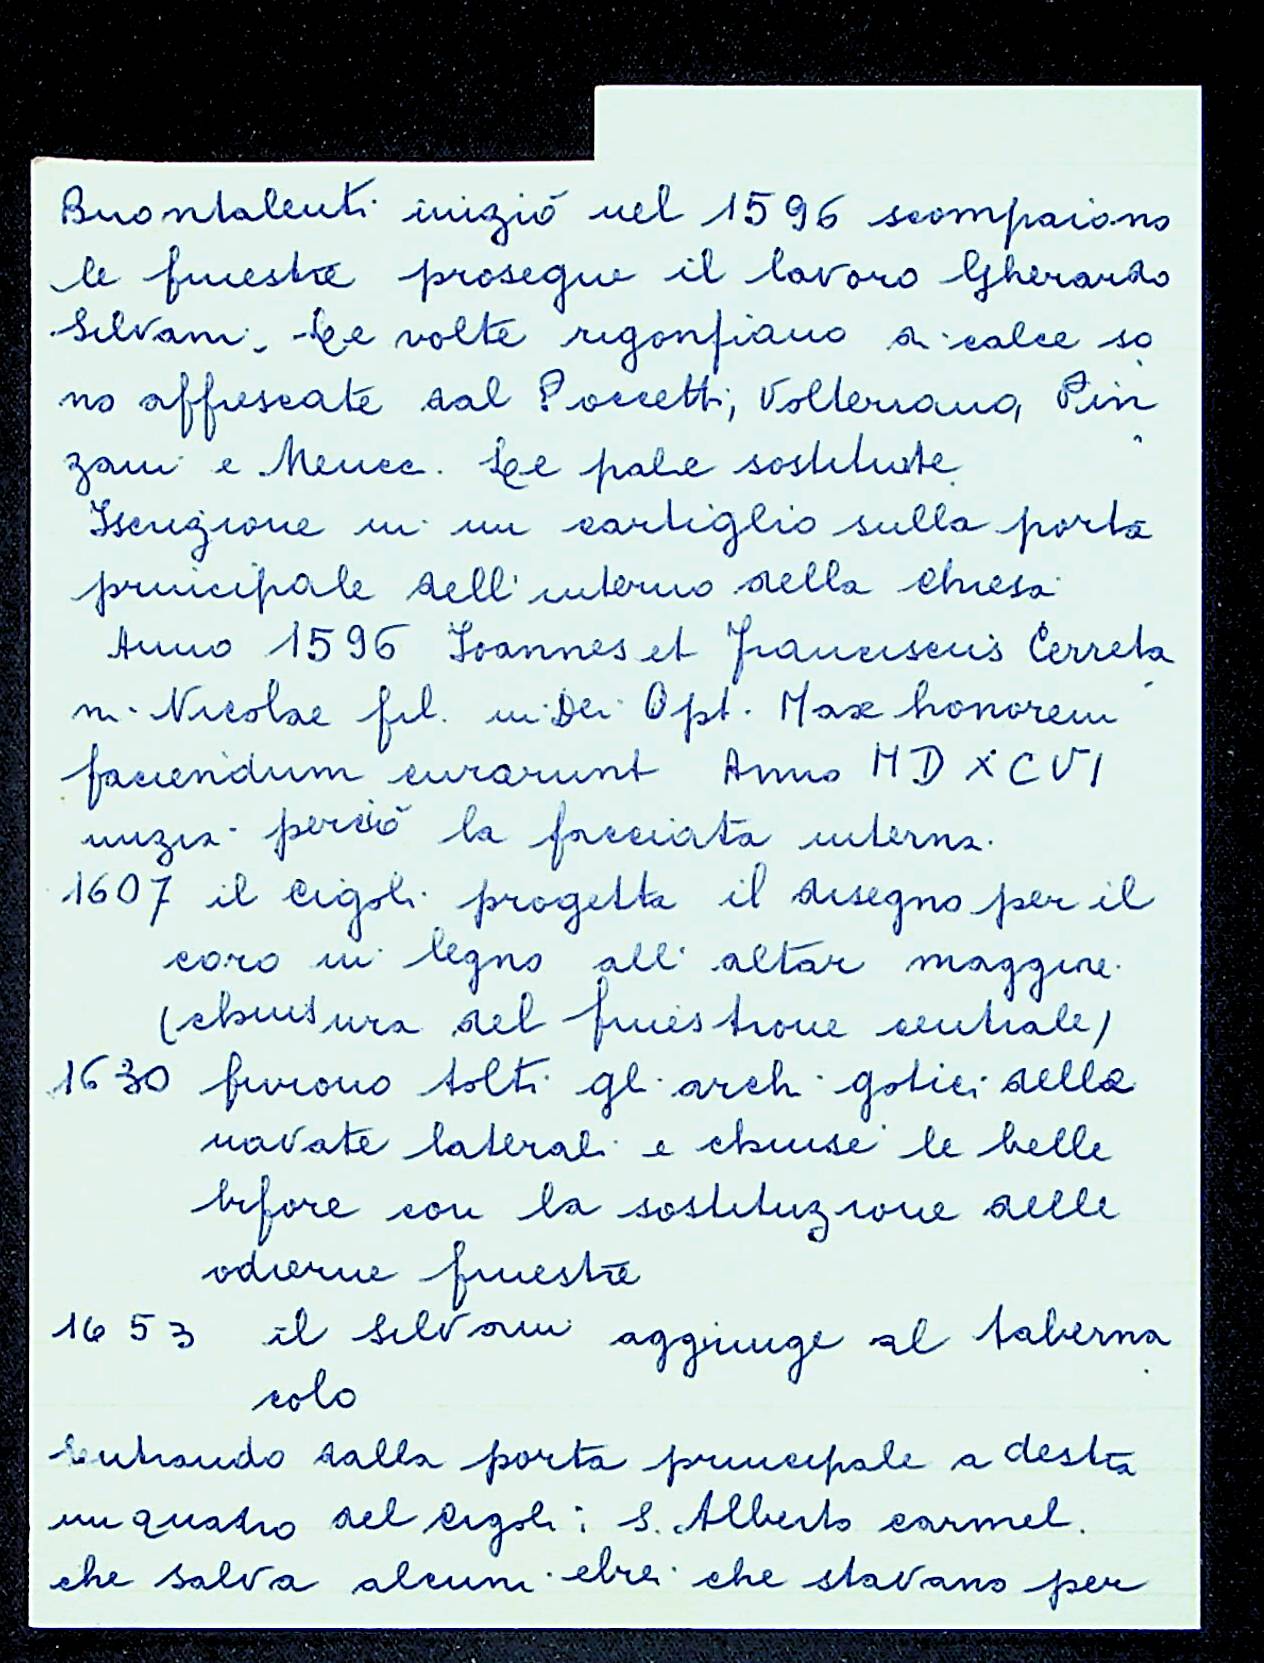 Buontalenti iniziò nel 1596 scompaiono
le finestre prosegue il lavoro Gherardo
Silvani. Le volte rigonfiano di calce so
no affrescate dal Poccetti, Volterrano, Pin
zani e Meucc. Le pale sostituite
Iscrizione in un cartiglio sulla porta
principale dell'interno della chiesa
Anno 1596 Ioannes et Franciscus Cerreta
ni Nicolae fil. in Dei Opt. Max honorem
faciendum curarunt Anno MDXCVI
inizia perciò la facciata interna.
1607 il Cigoli progetta il disegno per il
coro in legno all'altar maggiore
(chiusura del finestrone centrale)
1630 furono tolti gli archi gotici delle
navate laterali e chiuse le belle
bifore con la sostituzione delle
odierne finestre
1653 il Silvani aggiunge al taberna
colo
Entrando dalla porta principale a destra
un quadro del Cigoli: S. Alberto carmel.
che salva alcuni ebrei che stavano per